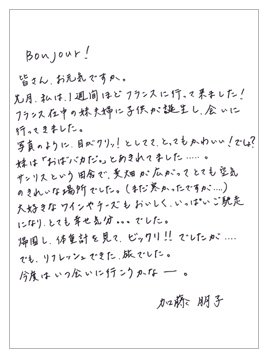 Bonjour!
皆さん、お元気ですか。
先月、私は、1週間ほどフランスに行って来ました!
フランス在中の妹夫婦に子供が誕生し、会いに
行ってきました。
写真のように、目がクリッ!としてて、とってもかわいい!でしょ?
妹は「おばバカだ」とあきれてました.....。
サンリスという田舎で、麦畑が広がってとても空気
のきれいな場所でした。(まだ寒かったですが...)
大好きなワインやチーズもおいしく、いっぱいご馳走
になり、とても幸せ気分...でした。
帰国し、体重計を見て、ビックリ!!でしたが....
でも、リフレッシュできた、旅でした。
今度はいつ会いに行こうかなー。
加藤 朋子